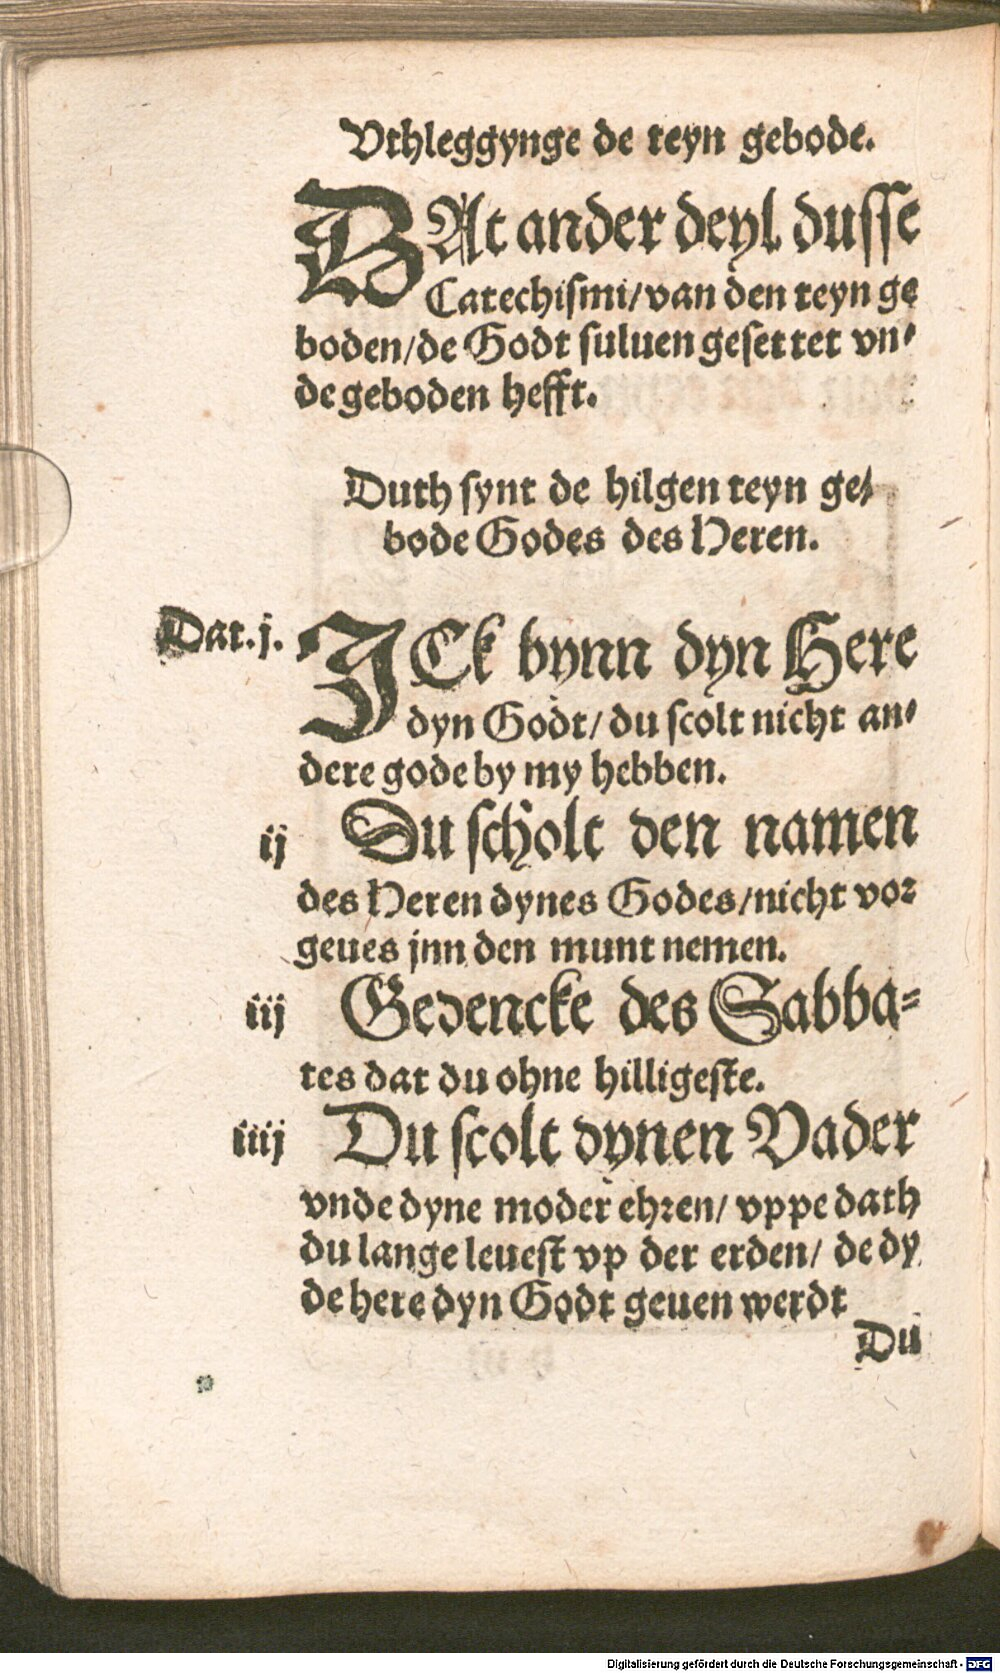 Vthleggynge de teyn gebode.
DAt ander deyl dusse
Catechismi/van den teyn ge
boden/de Godt suluen gesettet vn-
de geboden hefft.
Duth synt de hilgen teyn ge-
bode Godes des Heren.
Dat.j. ICk bynn dyn Here
dyn Godt/ du scolt nicht an-
dere gode by my hebben.
ij Du scholt den namen
des Heren dynes Godes/nicht vor
geues jnn den munt nemen.
iij Gedencke des Sabba-
tes dat du ohne hilligeste.
iiij Du scolt dynen Vader
vnde dyne moder ehren/ vppe dath
du lange leuest vp der erden/ de dy
de here dyn Godt geuen werdt
Du
Digitalisierung gefördert durch die Deutsche Forschungsgemeinschaft - DFG